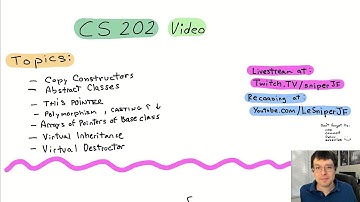 CS 202 Video
Topics:
- Copy Constructors
- Abstract Classes
- THIS POINTER
- Polymorphism, CASTING ↑ ↓
- Arrays of Pointers of Base class
- Virtual Inheritance
- Virtual Destructor
Livestream at:
Twitch.TV/sniperJF
Recording at:
Youtube.com/LeSniperJF
Don't forget to: